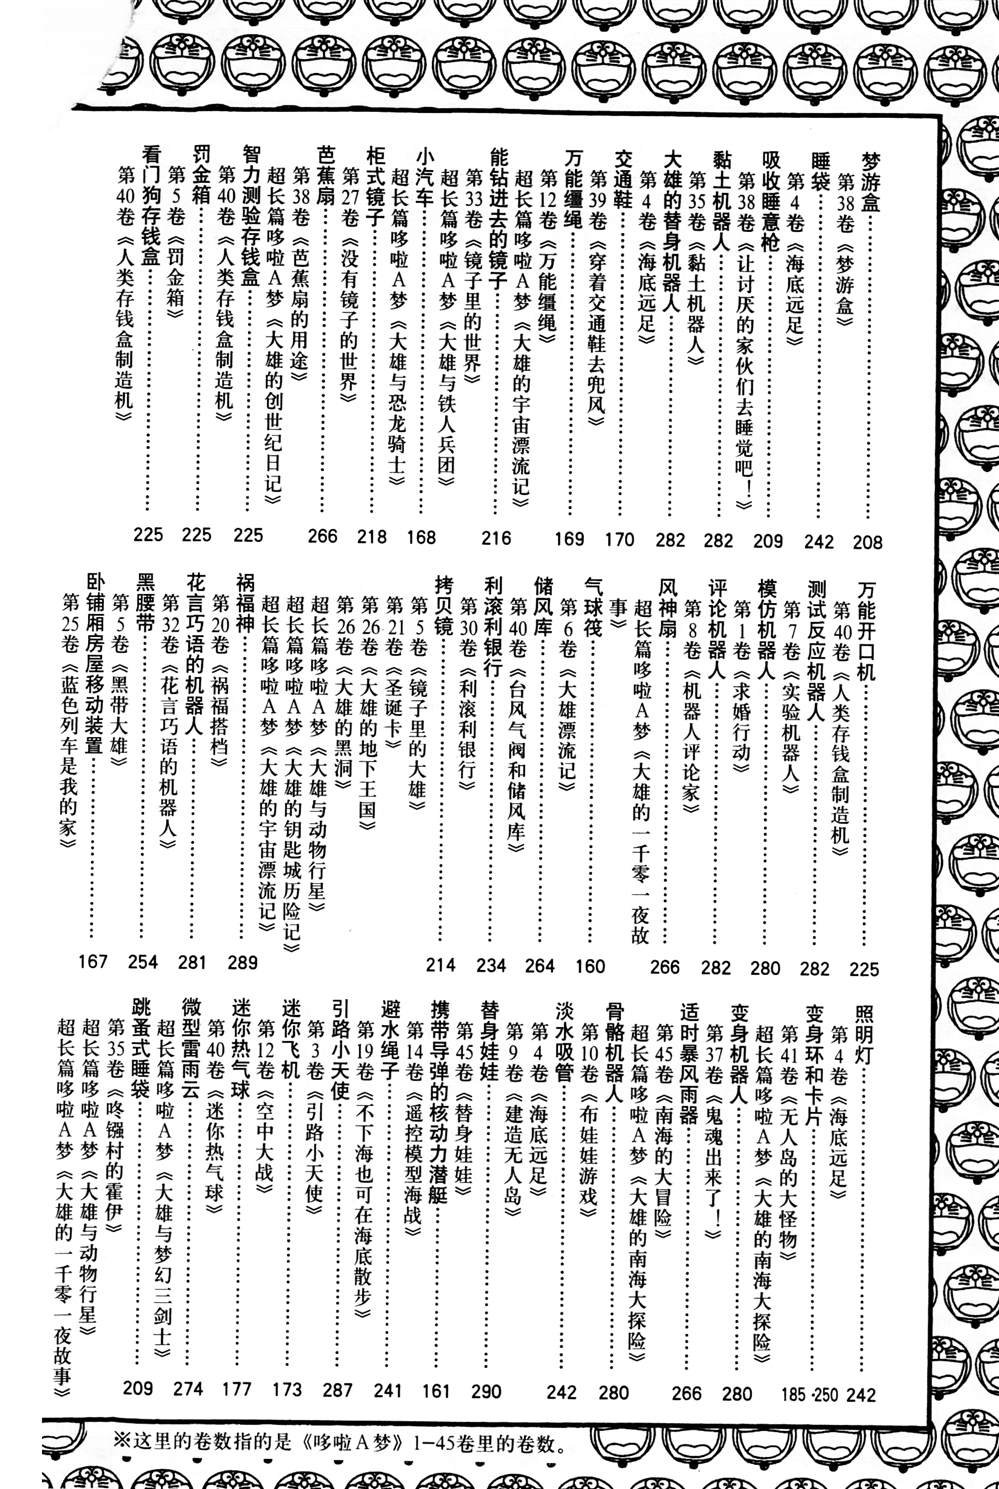 梦游盒……208
第38卷《梦游盒》
睡袋……242
第4卷《海底远足》
吸收睡意枪……209
第38卷《让讨厌的家伙们去睡觉吧！》
黏土机器人……282
第35卷《黏土机器人》
大雄的替身机器人……282
第4卷《海底远足》
交通鞋……170
第39卷《穿着交通鞋去兜风》
万能缰绳……169
第12卷《万能缰绳》
超长篇哆啦A梦《大雄的宇宙漂流记》
能钻进去的镜子……216
第33卷《镜子里的世界》
超长篇哆啦A梦《大雄与铁人兵团》
小汽车……168
超长篇哆啦A梦《大雄与恐龙骑士》
柜式镜子……218
第27卷《没有镜子的世界》
芭蕉扇……266
第38卷《芭蕉扇的用途》
超长篇哆啦A梦《大雄的创世纪日记》
智力测验存钱盒……225
第40卷《人类存钱盒制造机》
罚金箱……225
第5卷《罚金箱》
看门狗存钱盒……225
第40卷《人类存钱盒制造机》
万能开口机……225
第40卷《人类存钱盒制造机》
测试反应机器人……282
第7卷《实验机器人》
模仿机器人……280
第1卷《求婚行动》
评论机器人……282
第8卷《机器人评论家》
风神扇……266
超长篇哆啦A梦《大雄的一千零一夜故
事》
气球筏……160
第6卷《大雄漂流记》
储风库……264
第40卷《台风气阀和储风库》
利滚利银行……234
第30卷《利滚利银行》
拷贝镜……214
第5卷《镜子里的大雄》
第21卷《圣诞卡》
第26卷《大雄的地下王国》
第26卷《大雄的黑洞》
超长篇哆啦A梦《大雄与动物行星》
超长篇哆啦A梦《大雄的钥匙城历险记》
超长篇哆啦A梦《大雄的宇宙漂流记》
祸福神……289
第20卷《祸福搭档》
花言巧语的机器人……281
第32卷《花言巧语的机器人》
黑腰带……254
第5卷《黑带大雄》
卧铺厢房屋移动装置……167
第25卷《蓝色列车是我的家》
照明灯……242
第4卷《海底远足》
变身环和卡片……185·250
第41卷《无人岛的大怪物》
超长篇哆啦A梦《大雄的南海大探险》
变身机器人……280
第37卷《鬼魂出来了！》
适时暴风雨器……266
第45卷《南海的大冒险》
超长篇哆啦A梦《大雄的南海大探险》
骨骼机器人……280
第10卷《布娃娃游戏》
淡水吸管……242
第4卷《海底远足》
第9卷《建造无人岛》
替身娃娃……290
第45卷《替身娃娃》
携带导弹的核动力潜艇……161
第14卷《遥控模型海战》
避水绳子……241
第19卷《不下海也可在海底散步》
引路小天使……287
第3卷《引路小天使》
迷你飞机……173
第12卷《空中大战》
迷你热气球……177
第40卷《迷你热气球》
微型雷雨云……274
超长篇哆啦A梦《大雄与梦幻三剑士》
跳蚤式睡袋……209
第35卷《咚镪村的霍伊》
超长篇哆啦A梦《大雄与动物行星》
超长篇哆啦A梦《大雄的一千零一夜故事》
※这里的卷数指的是《哆啦A梦》1-45卷里的卷数。